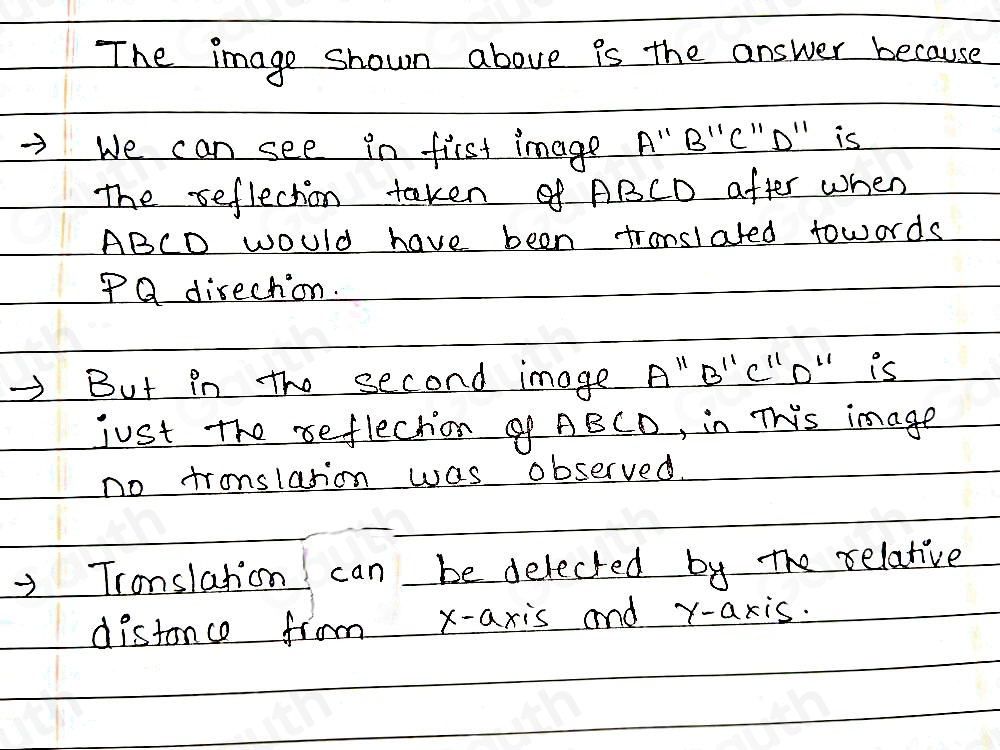 The image shown above is the answer because
→ We can see in first image A"B"C"D" is
The reflection taken of ABCD after when
ABCD would have been translated towards
PQ direction.
→ But in the second image A"B"C"D" is
just the reflection of ABCD, in This image
no translation was observed.
→ Translation can be detected by the relative
distance from x-axis and Y-axis.